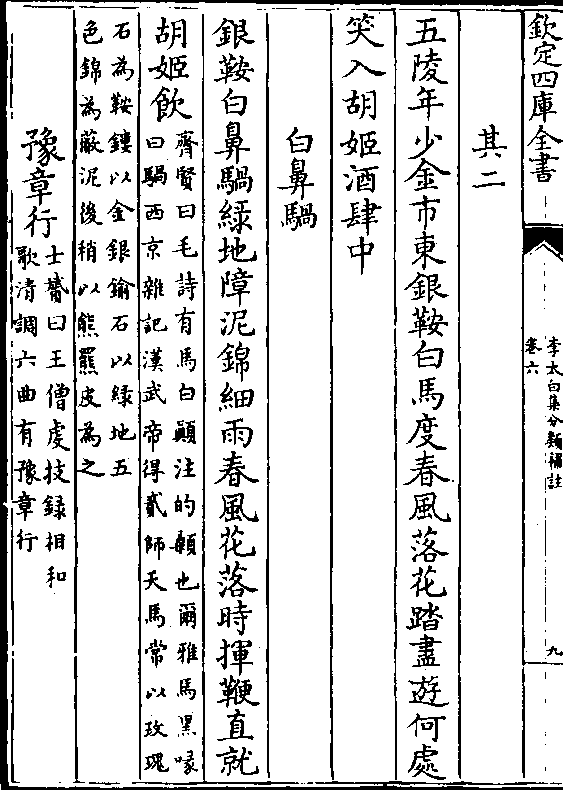 欽定四庫全書
李太白集分類補註
卷六
九
其二
五陵年少金市東銀鞍白馬度春風落花踏盡遊何處
笑入胡姬酒肆中
白鼻騧
銀鞍白鼻騧綠地障泥錦細雨春風花落時揮鞭直就
胡姬飲
齊賢曰毛詩有馬白顛注的顙也爾雅馬黑喙
曰騧西京雜記漢武帝得貳師天馬常以玫瑰
石為鞍鏤以金銀鍮石以綠地五
色錦為蔽泥後稍以熊羆皮為之
豫章行
士贇曰王僧虔技録相和
歌清調六曲有豫章行